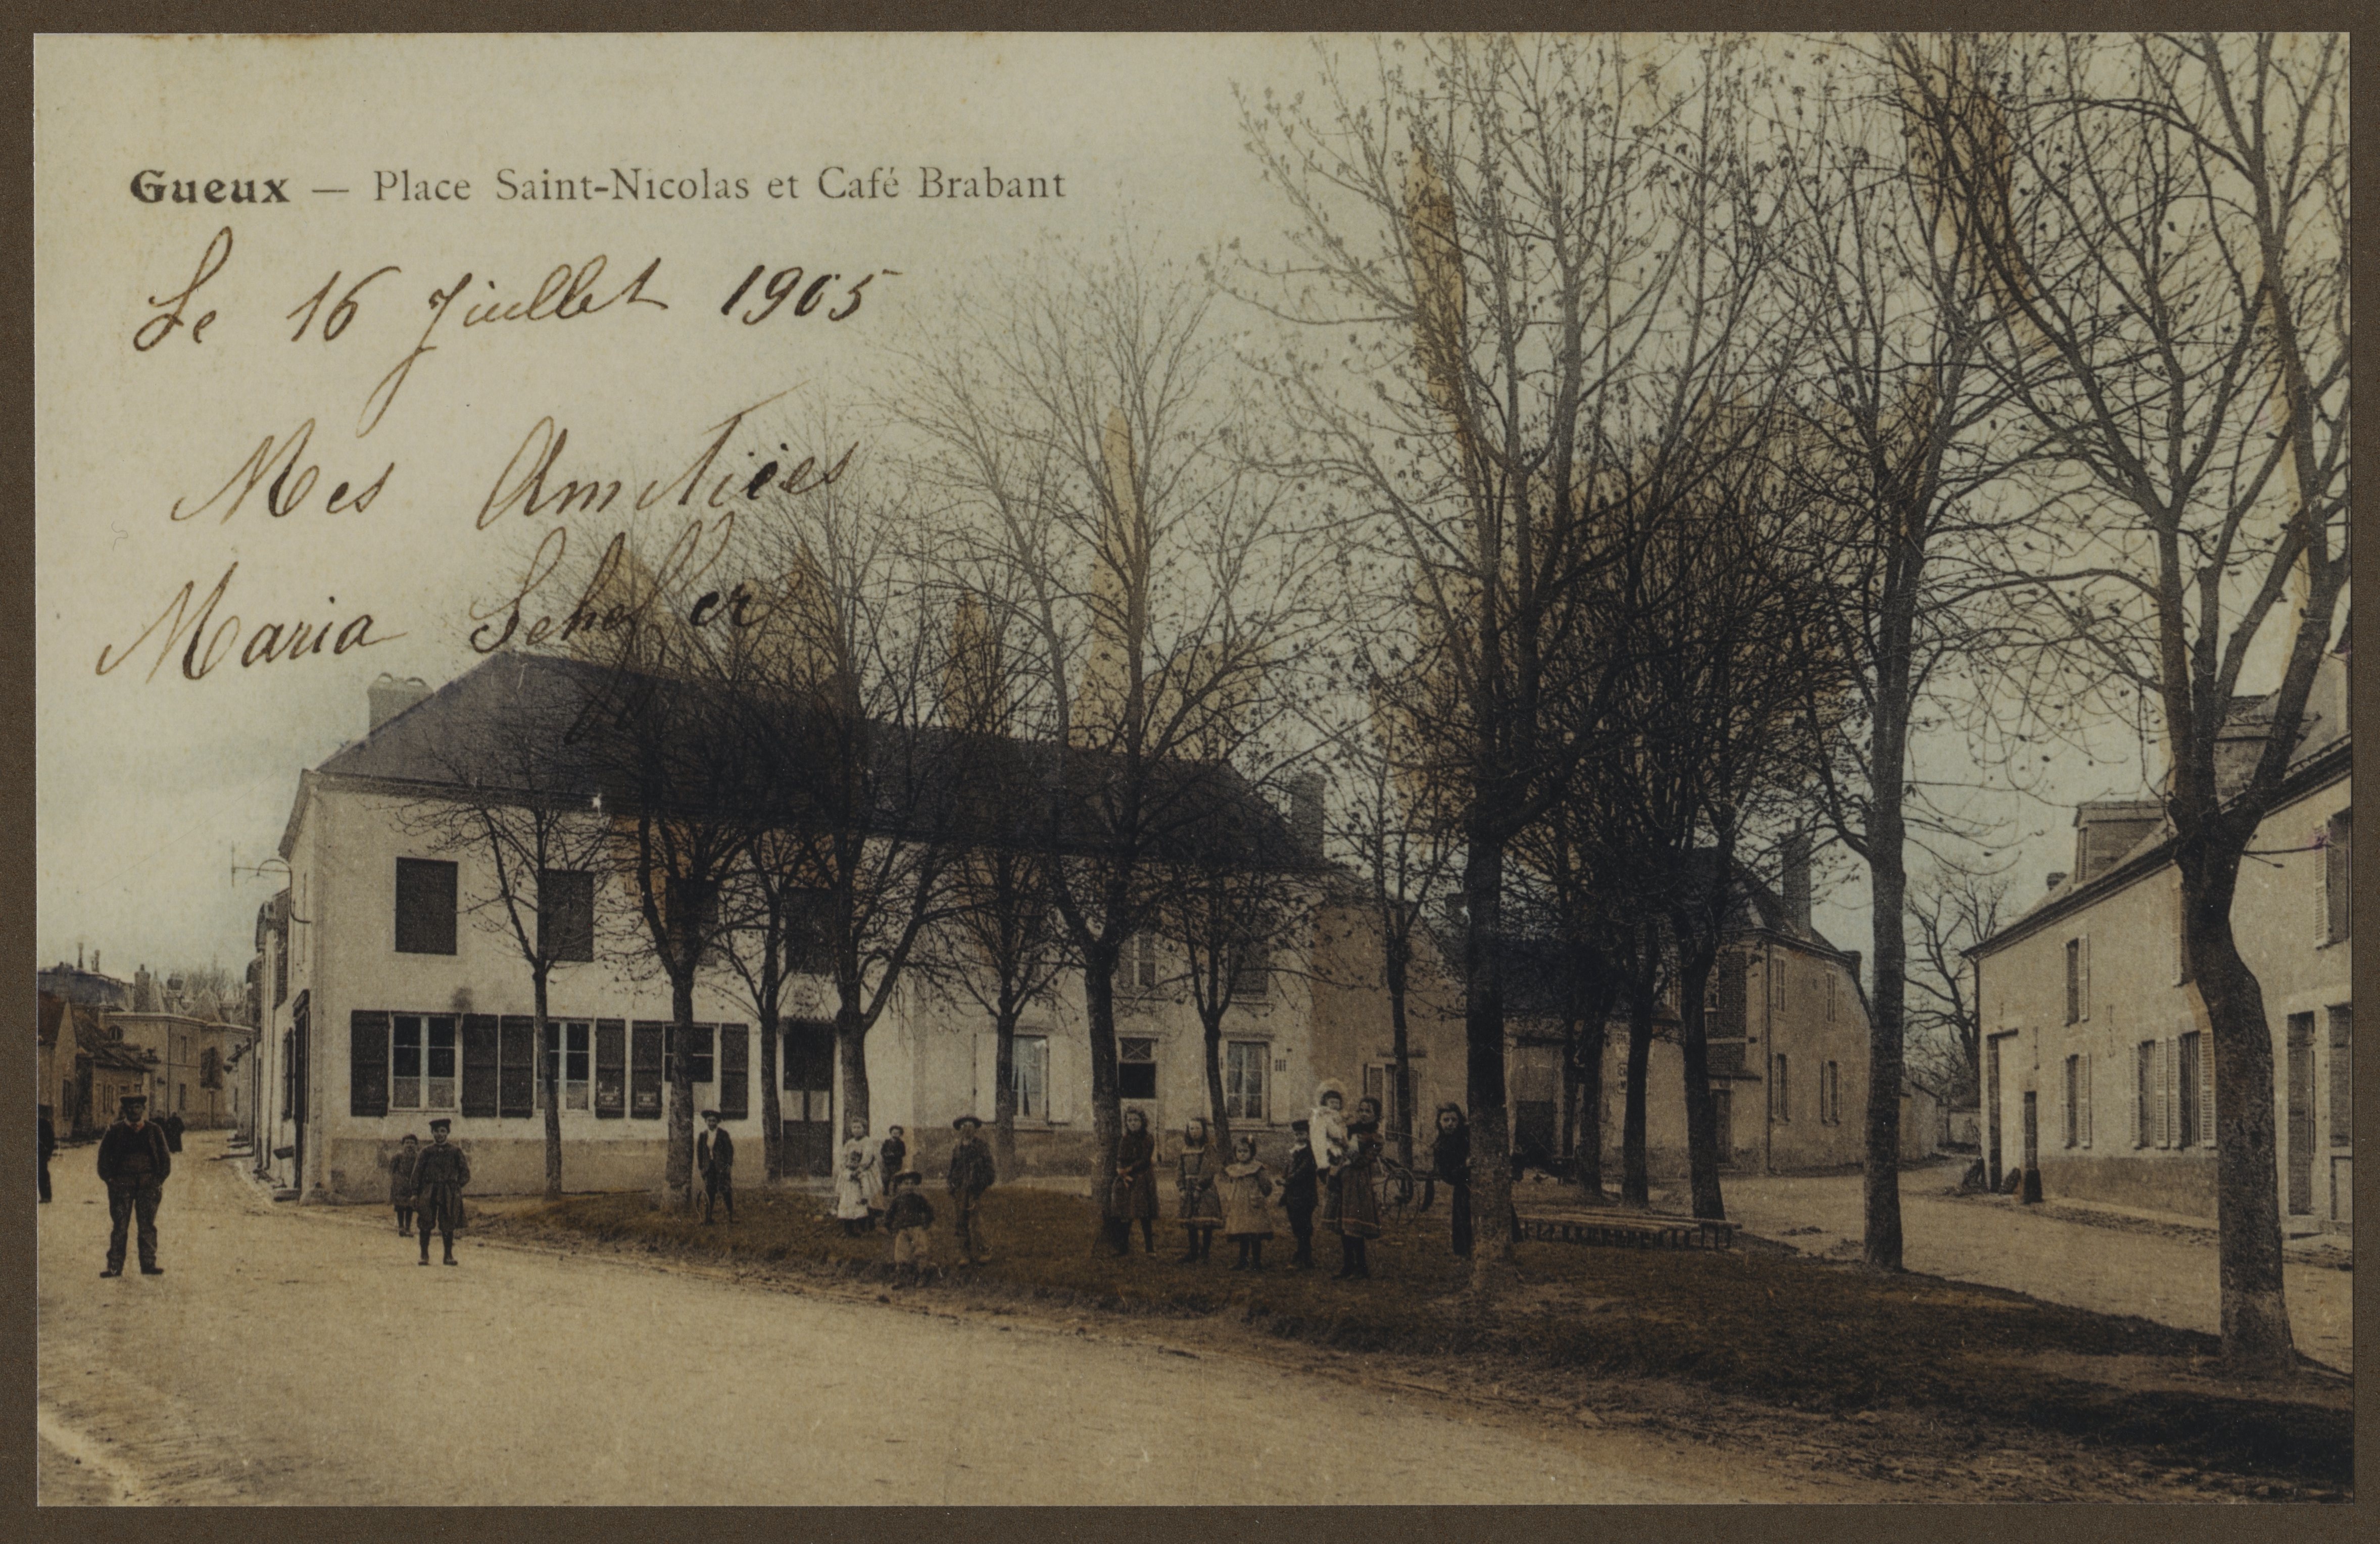 Gueux — Place Saint-Nicolas et Café Brabant
Le 16 Juillet 1905
Mes Amitiées
Maria Scheffer